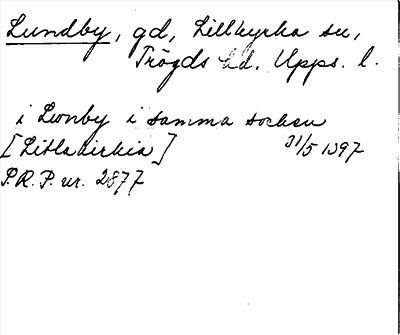 Lundby, gd, Lillkyrka sn,
Trögds hd. Upps. l.
i Lvnby i samma socken
[Litlakirkia] 31/5 1397
P.R.P. nr. 2877